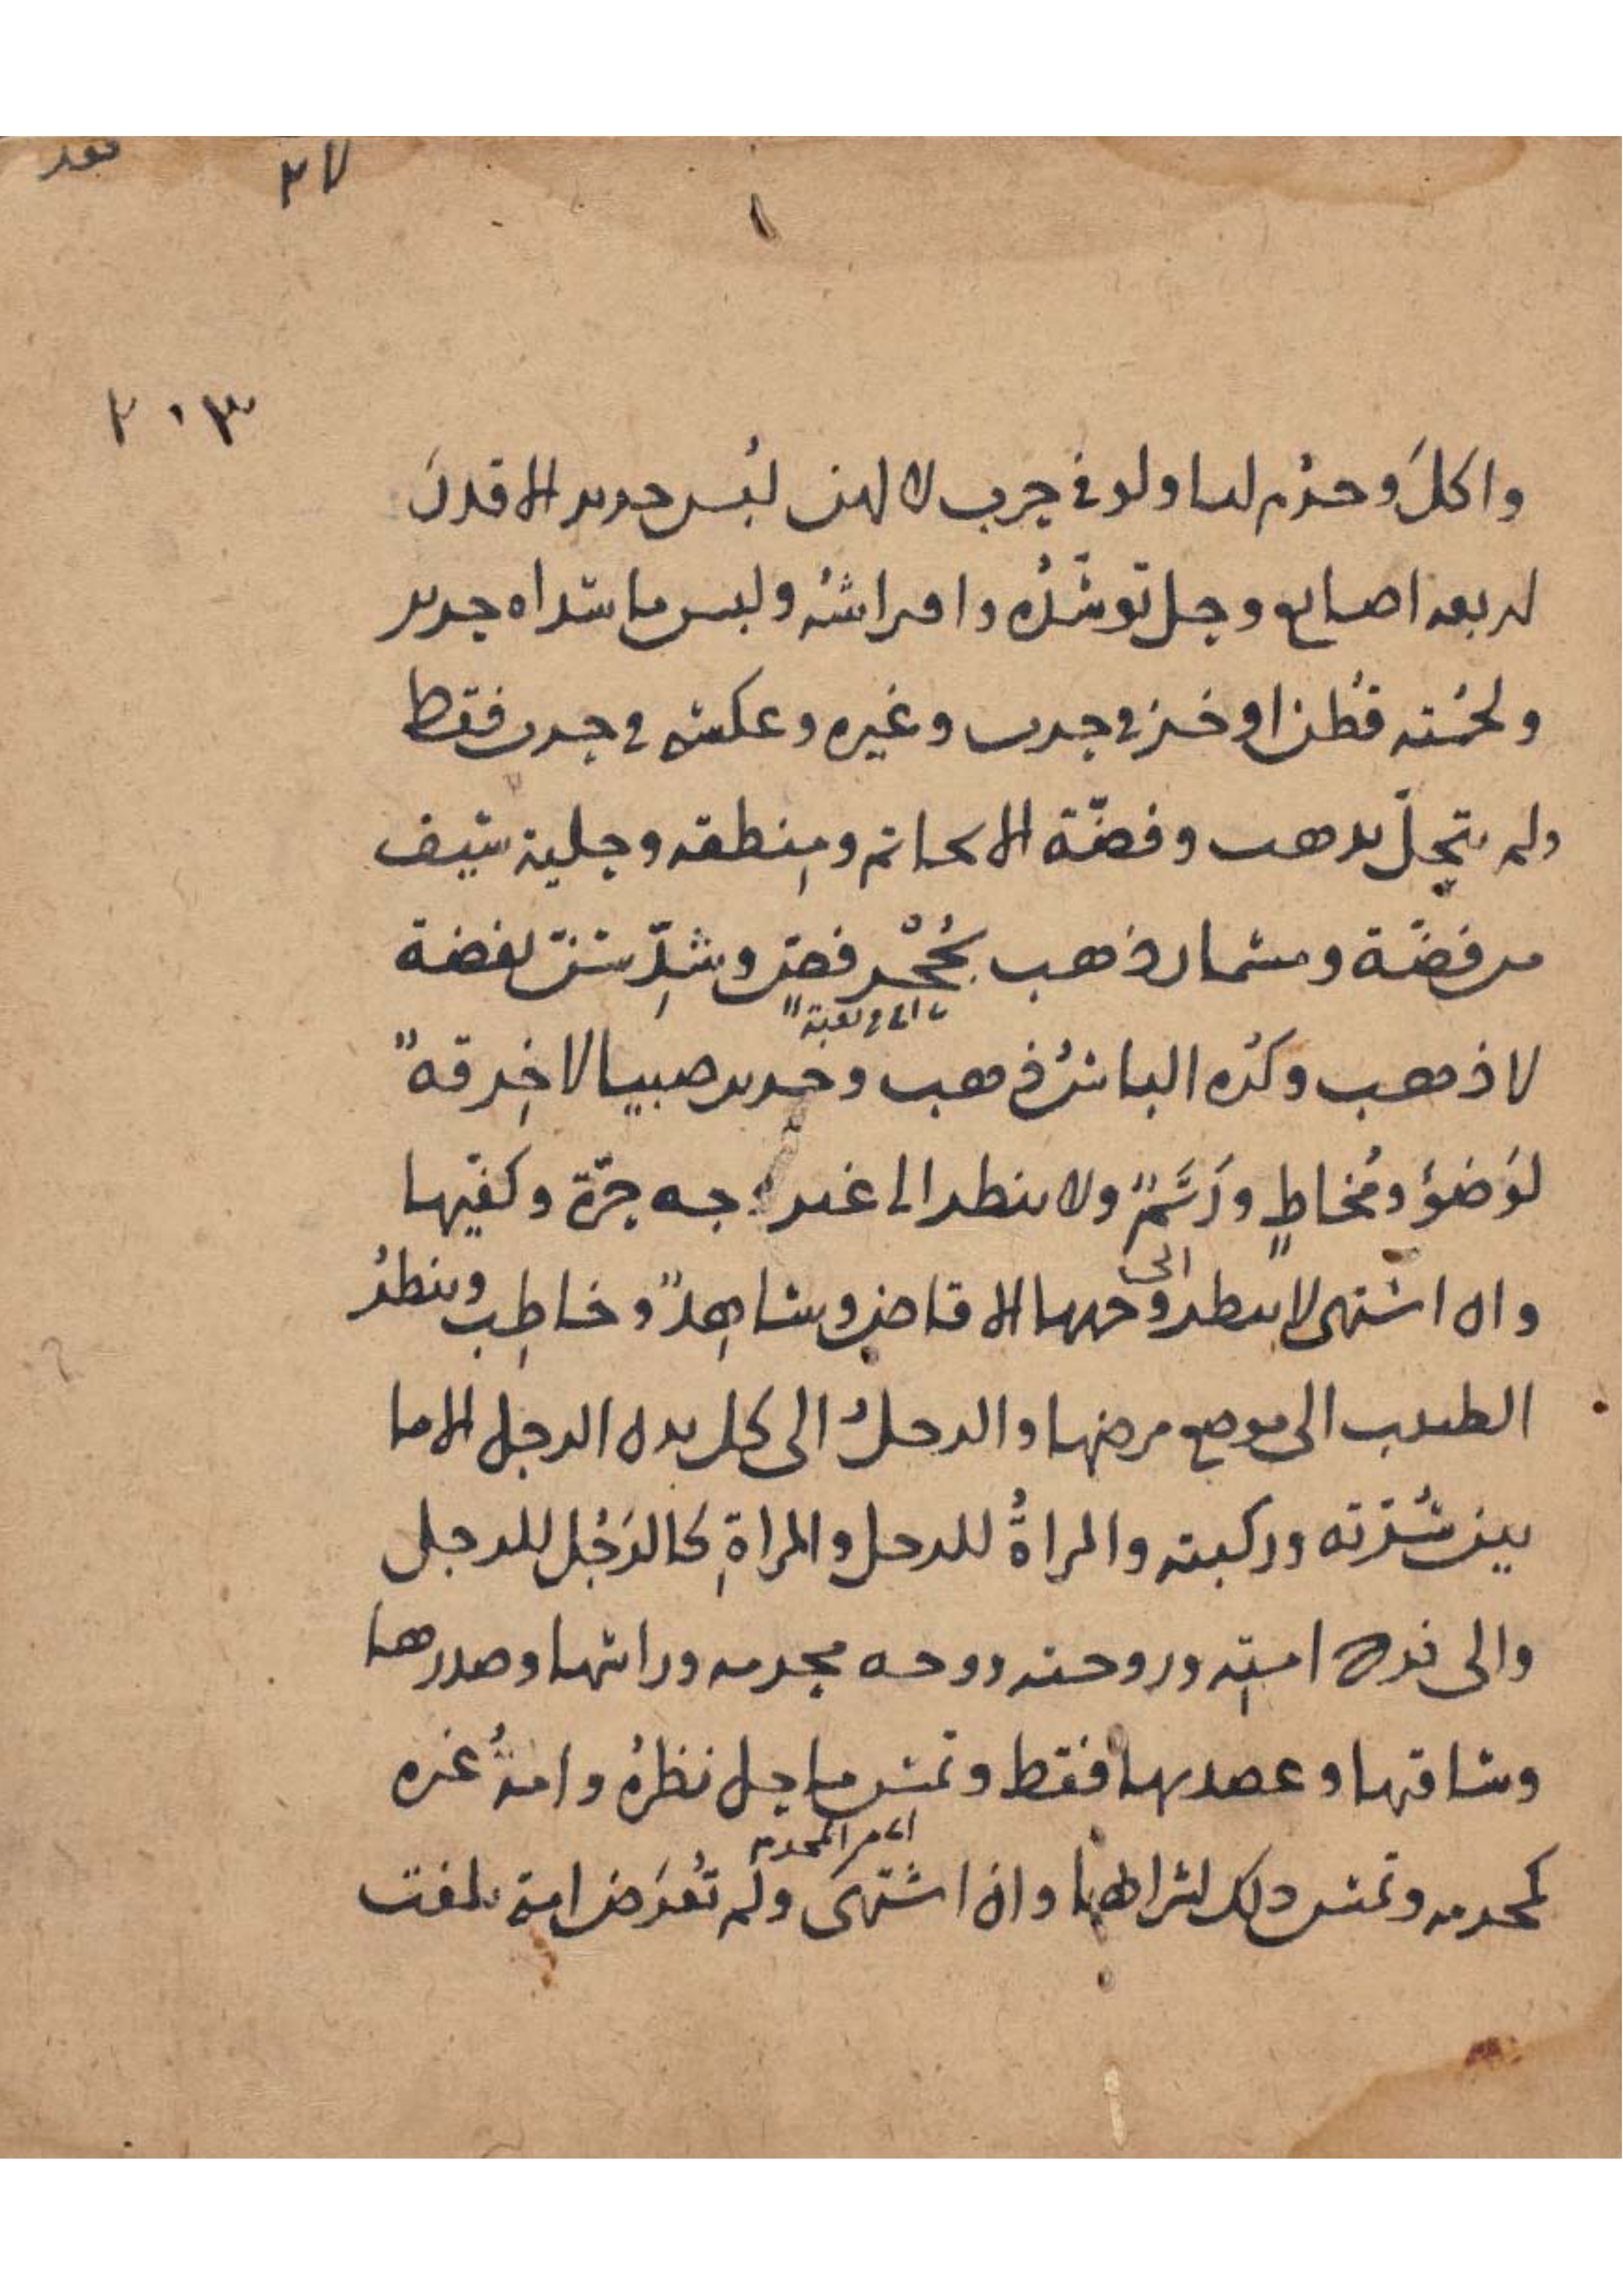 ٢٧
٢٠٣
واكل وحرم لنا ولو في حرب لا لهن لبس حرير الا قدر
اربعة اصابع وحل توسّده وافتراشه ولبس ما سداه حرير
ولحمته قطن او خز في حرب وغيره وعكسه في حرب فقط
ولم يتحلّ بذهب وفضّة الا بخاتم ومنطقة وحلية سيف
من فضّة ومسمار ذهب بجحر فصّ وشدّ سنّ بفضة
اى في ثقبه
لا ذهب وكره الباس ذهب وحرير صبيا لا خرقة
لوضوء ومخاط ورَتَم ولا ينظر الى غير وجه حرّة وكفيها
وان اشتهى لا ينظر الى وجهها الا قاض وشاهد وخاطب وينظر
الطبيب الى موضع مرضها والرجل الى كل بدن الرجل الا ما
بين سُرّته وركبته والمراةُ للرجل والمراةِ كالرجُل للرجل
والى فرج امته وزوجته ووجه محرمه وراسها وصدرها
وساقها وعضديها فقط وتمس ما حل نظره وامةُ غيره
اى من المحرمه
كمحرمه وتمس ذلك لشرائها وان اشتهى ولم تُعرَض امة بلغت